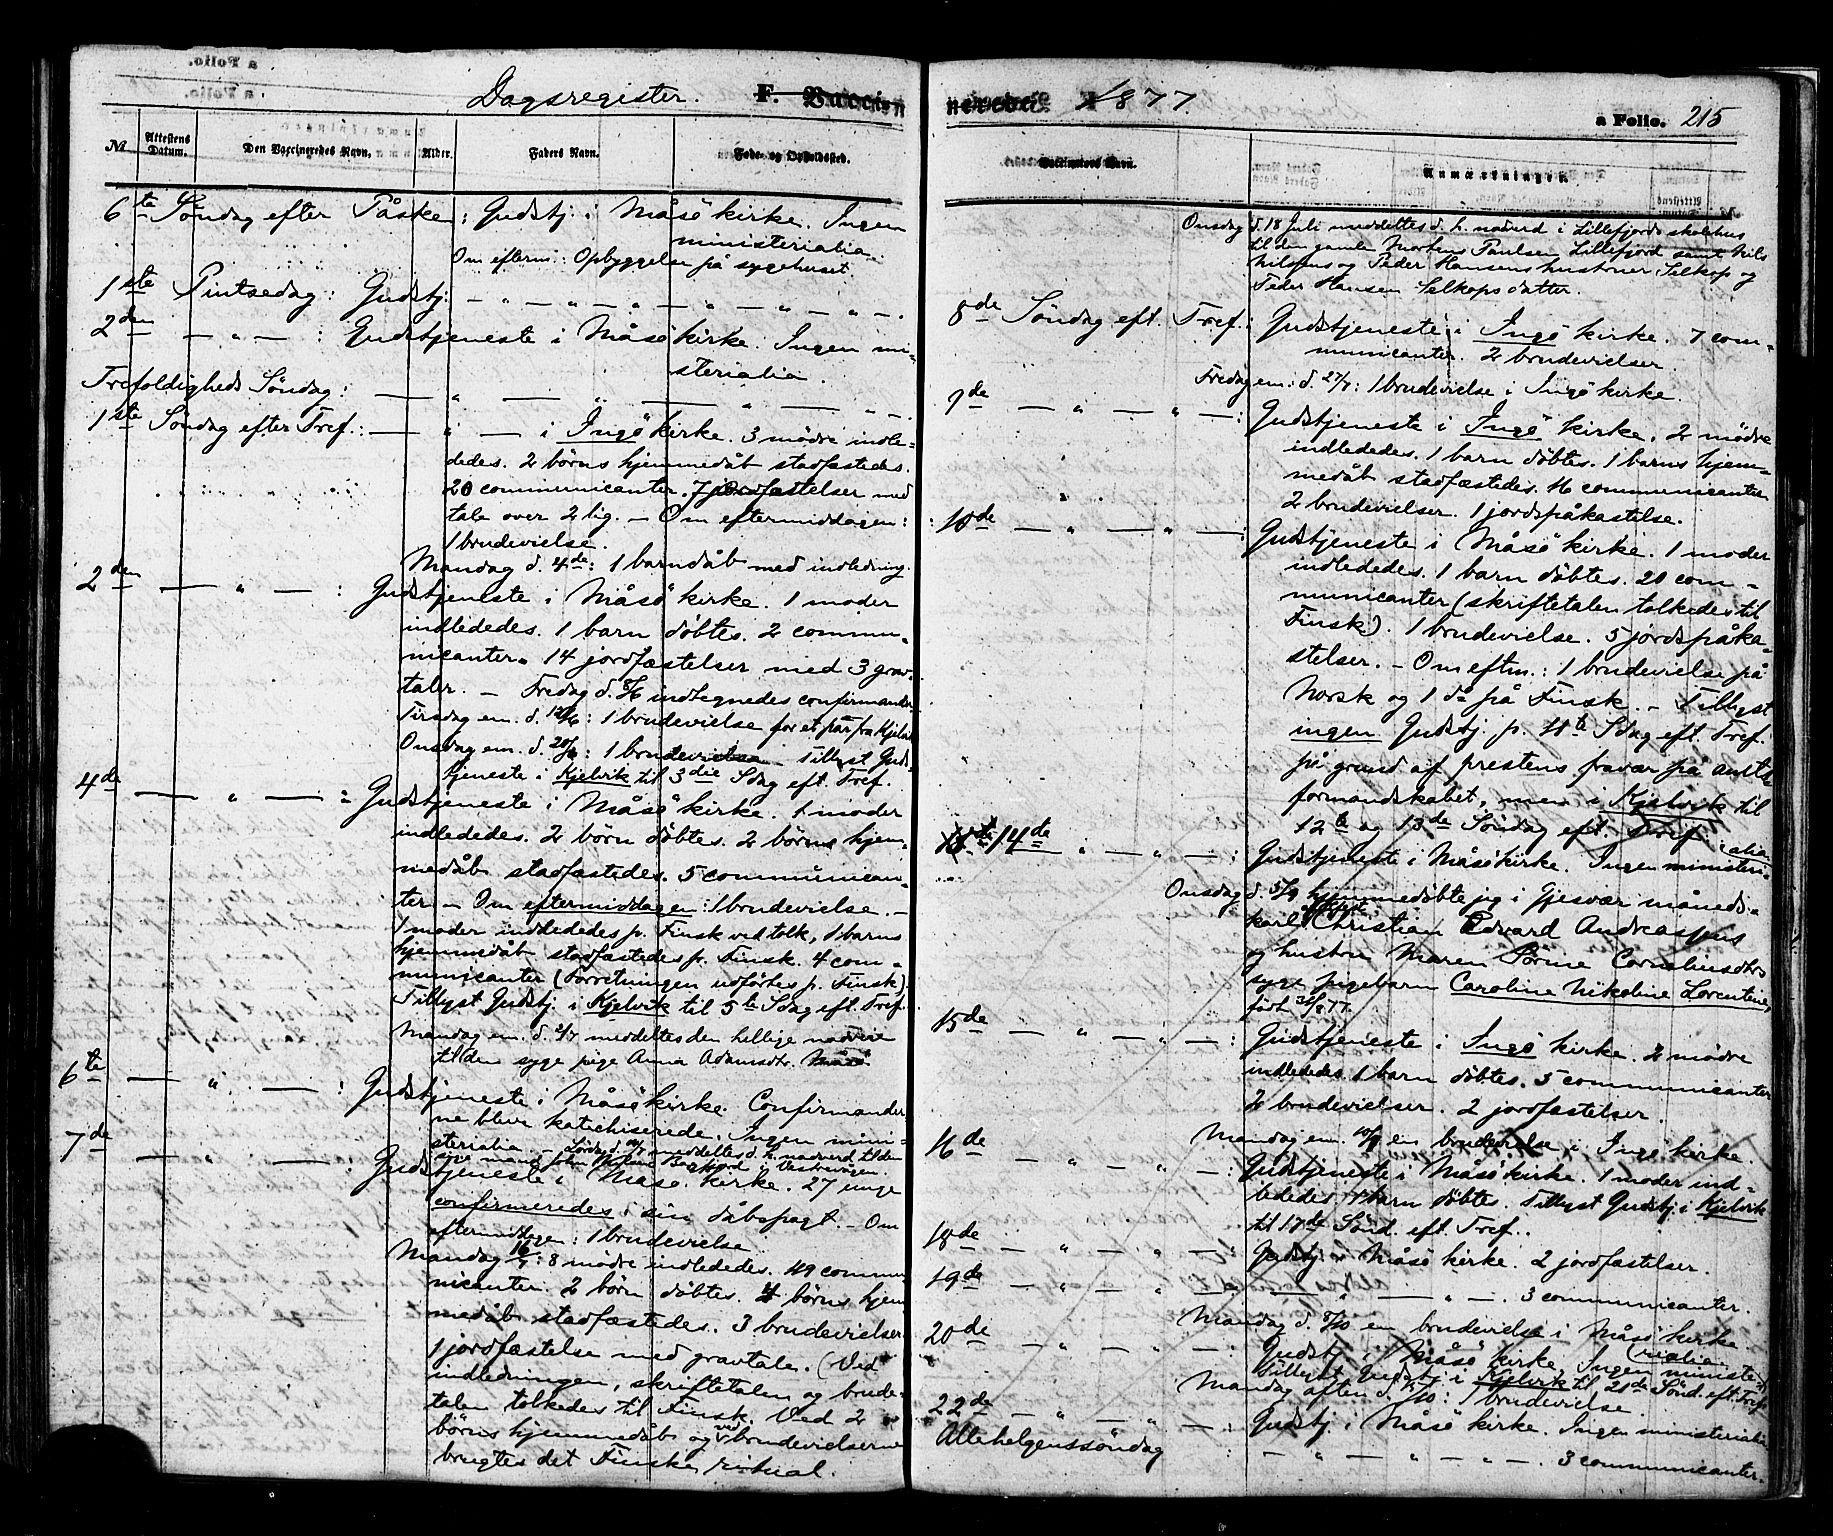 Dagsregister. F. Vaccinerede 1877.
a Folio. 215
№ Attestens Datum. Den Vaccineredes Navn. Alder. Faders Navn. Føde- og Opholdssted.
6te Søndag efter Påske: Gudstj. i Måsø kirke. Ingen
ministerialia.
Om efterm: Opbyggelse på sygehuset.
1ste Pintsedag: Gudstj: — „ — „ — „ — „ — „ — .
2den — „ — : Gudstjeneste i Måsø kirke. Ingen mi-
sterialia.
Trefoldigheds Søndag: — „ — „ — „ — „ — .
1ste Søndag efter Tref.: — „ — i Ingø kirke. 3 mødre indle-
dedes. 2 børns hjemmedåb stadfæstedes.
20 communicanter. 7 jordfæstelser med
tale over 2 lig. – Om eftermiddagen:
1 brudevielse.
Mandag d. 4de: 1 barndåb med indledning.
2den — „ — : Gudstjeneste i Måsø kirke. 1 moder
indlededes. 1 barn døbtes. 2 commu-
nicanter. 14 jordfæstelser med 3 grav-
taler. – Fredag d. 8/6 indtegnedes confirmander
Tirsdag em. d. 12/6: 1 brudevielse for et par fra Kjelvik
Onsdag em. d. 20/6: 1 brudevielse – Tillyst Guds-
tjeneste i Kjelvik til 3die Sdag eft. Tref.
4de — „ — : Gudstjeneste i Måsø kirke. 1 moder
indlededes. 2 børn døbtes. 2 børns hjem-
medåb stadfæstedes. 5 communican-
ter – Om eftermiddagen: 1 brudevielse. –
1 moder indlededes p. Finsk ved tolk, 1 barns
hjemmedåb stadfæstedes p. Finsk. 4 com-
municanter (Forretningen udførtes p. Finsk)
Tillyst Gudstj. i Kjelvik til 5te Sdag eft. Tref.
Mandag em. d. 2/7 meddeltes den hellige nadvere
til den syge pige Anna Adamsdtr. Måsø
6te — „ — : Gudstjeneste i Måsø kirke. Confirmander-
ne bleve katechiserede. Ingen mini-
sterialia. Lørdag d. 14/7 meddeltes d. h. nadverd til den
syge mand John Bakfjord i Vestervågen.
7de — „ — : Gudstjeneste i Måsø kirke. 27 unge
confirmeredes i sin dåbspagt. – Om
eftermiddagen: 1 brudevielse
Mandag 16/7: 8 mødre indlededes. 49 commu-
nicanter. 2 børn døbtes. 4 børns hjem-
medåb stadfæstedes. 3 brudevielser.
1 jordfæstelse med gravtale. (Ved
indledningen, skriftetalen og brude-
talen tolkedes til Finsk. Ved 2
børns hjemmedåb og ved brudevielserne
brugtes det Finske ritual.
Vaccinators Navn. Anmærkninger.
Onsdag d. 18 Juli meddeltes d. h. nadverd i Lillefjords skolehus
til den gamle Morten Paulsen Lillefjord samt Nils
Nilsens og Peder Hansens hustruer Selkop og
Peder Hansen Selkops datter.
8de Søndag eft. Tref.: Gudstjeneste i Ingø kirke. 7 com-
municanter. 2 brudevielser.
Fredag em: d. 27/7: 1 brudevielse i Ingø kirke.
9de — „ — „ — : Gudstjeneste i Ingø kirke. 2 mødre
indlededes. 1 barn døbtes. 1 barns hjem-
medåb stadfæstedes. 16 communicanter
2 brudevielser. 1 jordspåkastelse.
10de — „ — „ — : Gudstjeneste i Måsø kirke. 1 moder
indlededes. 1 barn døbtes. 20 com-
municanter (skriftetalen tolkedes til
Finsk). 1 brudevielse. 5 jordspåka-
stelser. – Om eftm.: 1 brudevielse på
Norsk og 1 do på Finsk. – Tillyst
ingen Gudstj. p. 11te Sdag eft. Tref.
på grund af prestens fravær på amts-
formandskabet, men i Kjelvik til
12te og 13de Søndag eft. Tref.
14de „ — „ — : Gudstjeneste i Måsø kirke. Ingen ministeri-
alia.
Onsdag d. 5/9 hjemmedøbte jeg i Gjesvær måneds-
karl Christian Edvard Andreassens
og hustru Maren Sørine Corneliusdtrs
syge pigebarn Caroline Nikoline Lorentine,
født 31/8 77.
15de — „ — „ — : Gudstjeneste i Ingø kirke. 2 mødre
indlededes. 1 barn døbtes. 5 communicanter
2 brudevielser. 2 jordfæstelser.
Mandag em. 10/9 en brudevielse i Ingø kirke.
16de — „ — „ — : Gudstjeneste i Måsø kirke. 1 moder ind-
lededes 1 barn døbtes. Tillyst Gudstj. i Kjelvik
til 17de Sønd. eft. Tref.
18de — „ — „ — : Gudstj. i Måsø kirke. 2 jordfæstelser.
19de — „ — „ — : — „ — „ — . 3 communicanter.
Mandag d. 8/10 en brudevielse i Måsø kirke.
20de — „ — „ — : Gudstj. i Måsø kirke. Ingen ministe-
rialia.
Tillyst Gudstj. i Kjelvik til 21de Sønd. eft. Tref.
Mandag aften d. /10: 1 brudevielse.
22de — „ — „ — : Gudstj. i Måsø kirke. Ingen ministerialia
Allehelgenssøndag : — „ — „ — „ — . 3 communicanter.